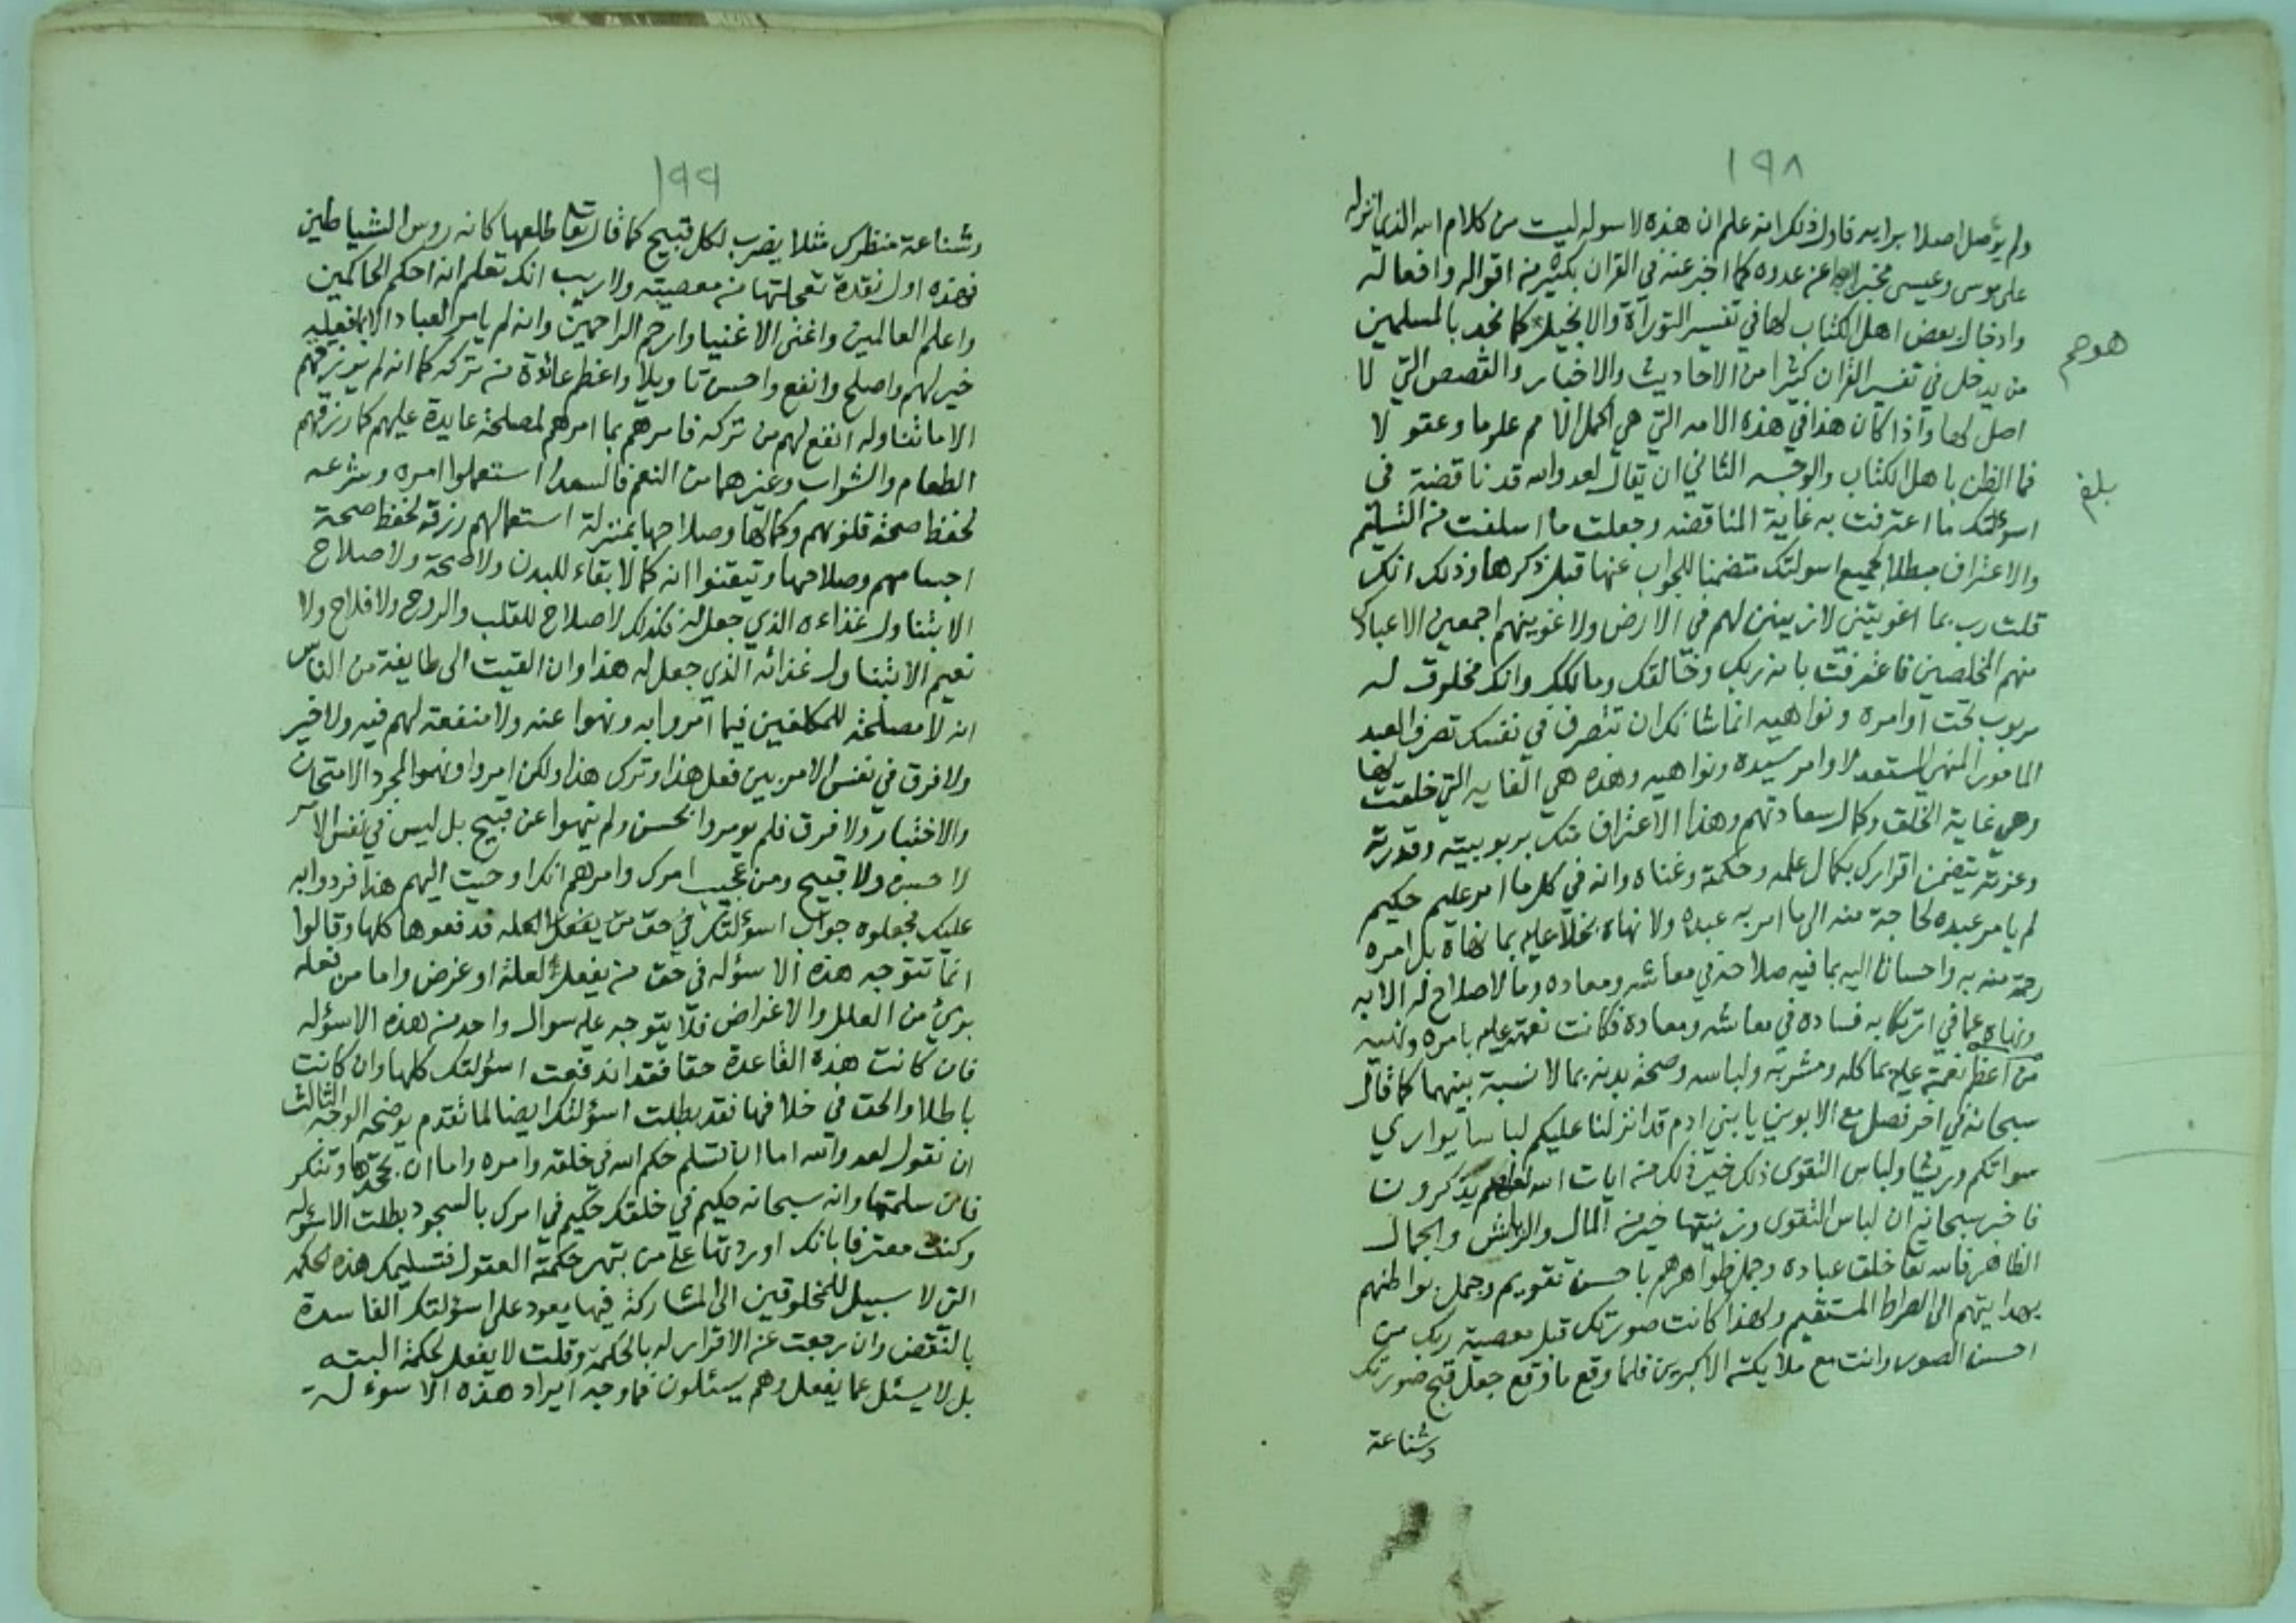 ١٩٨
ولم يؤصل اصلا برايه فاول ذلك انه علم ان هذه لاسوله ليست من كلام الله الذي انزله
على موسى وعيسى مخبرا بها عن عدوه كما اخبر عنه في القران بكثير من اقواله وافعاله
وادخال بعض اهل الكتاب لها في تفسير التوراة والانجيل كما نجد بالمسلمين
هوهم
من يدخل في تفسير القران كثيرا من الاحاديث والاخبار والقصص التي لا
اصل لها واذا كان هذا في هذه الامه التي هي اكمل الامم علوما وعقولا
فما الظن باهل الكتاب والوجه الثاني ان يقال لعدو الله قد ناقضت في
بلغ
اسولتك ما اعترفت به غاية المناقضه وجعلت ما اسلفت من التسليم
والاعتراف مبطلا لجميع اسولتك متضمنا للجواب عنها قبل ذكرها وذلك انك
قلت رب بما اغويتني لازينن لهم في الارض ولاغوينهم اجمعين الا عبادك
منهم المخلصين فاعترفت بانه ربك وخالقك ومالكك وانك مخلوق له
مربوب تحت اوامره ونواهيه انما شانك ان تتصرف في نفسك تصرف العبد
المامور المنهي المستعد لاوامر سيده ونواهيه وهذه هي الغايه التي خلقت لها
وهي غاية الخلق وكمال سعادتهم وهذا الاعتراف منك بربوبيته وقدرته
وعزته يتضمن اقرارك بكمال علمه وحكمته وغناه وانه في كل ما امر عليم حكيم
لم يامر عبده لحاجة منه الى ما امر به عبده ولا نهاه بخلا عليه بما نهاه بل امره
رحمة منه به واحسانا اليه بما فيه صلاحه في معاشه ومعاده وما لا صلاح له الا به
ونهاه عما في ارتكابه فساده في معاشه ومعاده فكانت نعمته عليه بامره ونهيه
من اعظم نعمته عليه بماكله ومشربه ولباسه وصحة بدنه بما لا نسبة بينهما كما قال
سبحانه في اخر فصل مع الابوين يا بني ادم قد انزلنا عليكم لباسا يواري
سواتكم وريشا ولباس التقوى ذلك خير ذلك من ايات الله لعلهم يذكرون
فاخبر سبحانه ان لباس التقوى وزينتها خير من المال والرياش والجمال
الظاهر فالله تعا خلق عباده وجمل ظواهرهم باحسن تقويم وجمل بواطنهم
بهدايتهم الى الصراط المستقيم ولهذا كانت صورتك قبل معصية ربك من
احسن الصور وانت مع ملايكته الاكبرين فلما وقع ما وقع جعل قبح صورتك
وشناعة
١٩٩
وشناعة منظرك مثلا يضرب لكل قبيح كما قال تعا طلعها كانه روس الشياطين
فهذه اول نقدة تعجلتها من معصيته ولا ريب انك تعلم انه احكم الحاكمين
واعلم العالمين واغنى الاغنيا وارحم الراحمين وانه لم يامر العباد الا بما فعله
خير لهم واصلح وانفع واحسن تاويلا واعظم عائدة من تركه كما انه لم يرزقهم
الا ما تناوله انفع لهم من تركه فامرهم بما امرهم لمصلحة عايدة عليهم كما رزقهم
الطعام والشراب وغيرهما من النعم فالسعدا استعملوا امره وشرعه
لحفظ صحة قلوبهم وكمالها وصلاحها بمنزلة استعمالهم رزقه لحفظ صحة
اجسامهم وصلاحها وتيقنوا انه كما لا بقاء للبدن ولا صحة ولا صلاح
الا بتناول غذاءه الذي جعل له فكذلك لا صلاح للقلب والروح ولا فلاح ولا
نعيم الا بتناول غذائه الذي جعل له هذا وان القيت الى طايفة من الناس
انه لا مصلحة للمكلفين فيما امروا به ونهوا عنه ولا منفعة لهم فيه ولا خير
ولا فرق في نفس الامر بين فعل هذا وترك هذا ولكن امروا ونهوا لمجرد الامتحان
والاختبار ولا فرق فلم يومروا بحسن ولم ينهوا عن قبيح بل ليس في نفس الامر
لا حسن ولا قبيح ومن عجيب امرك وامرهم انك اوحيت اليهم هذا فردوا به
عليك فجعلوه جواب اسؤلتك في حق من يفعل لعله فدفعوها كلها وقالوا
انما تتوجه هذه الاسؤله في حق من يفعل لعلة او غرض واما من فعله
بريء من العلل والاغراض فلا يتوجه عليه سوال واحد من هذه الاسؤله
فان كانت هذه القاعدة حقا فقد اندفعت اسؤلتك كلها وان كانت
باطلا والحق في خلافها فقد بطلت اسؤلتك ايضا لما تقدم يوضحه الوجه الثالث
ان نقول لعدو الله اما ان تسلم حكم الله في خلقه وامره واما ان تجحدها وتنكر
فان سلمتها وانه سبحانه حكيم في خلقك حكيم في امرك بالسجود بطلت الاسؤله
وكنت معترفا بانك اوردتها على من تبهر حكمته العقول فتسليمك هذه الحكمه
التي لا سبيل للمخلوقين الى المشاركة فيها يعود على اسؤلتك الفاسدة
بالنقض وان رجعت عن الاقرار له بالحكمة وقلت لا يفعل لحكمة البته
بل لا يسئل عما يفعل وهم يسئلون فما وجه ايراد هذه الاسوءلة